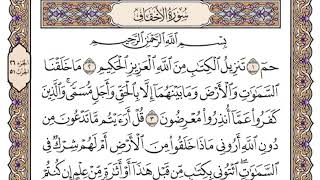 سُورَةُ الأَحْقَافِ
بِسْمِ اللَّهِ الرَّحْمَٰنِ الرَّحِيمِ
حمٓ ١ تَنزِيلُ الْكِتَابِ مِنَ اللَّهِ الْعَزِيزِ الْحَكِيمِ ٢ مَا خَلَقْنَا
السَّمَاوَاتِ وَالْأَرْضَ وَمَا بَيْنَهُمَا إِلَّا بِالْحَقِّ وَأَجَلٍ مُّسَمًّى وَالَّذِينَ
كَفَرُوا عَمَّا أُنذِرُوا مُعْرِضُونَ ٣ قُلْ أَرَءَيْتُم مَّا تَدْعُونَ مِن
دُونِ اللَّهِ أَرُونِي مَاذَا خَلَقُوا مِنَ الْأَرْضِ أَمْ لَهُمْ شِرْكٌ فِي
السَّمَاوَاتِ ائْتُونِي بِكِتَابٍ مِّن قَبْلِ هَٰذَا أَوْ أَثَارَةٍ مِّنْ عِلْمٍ إِن كُنتُمْ